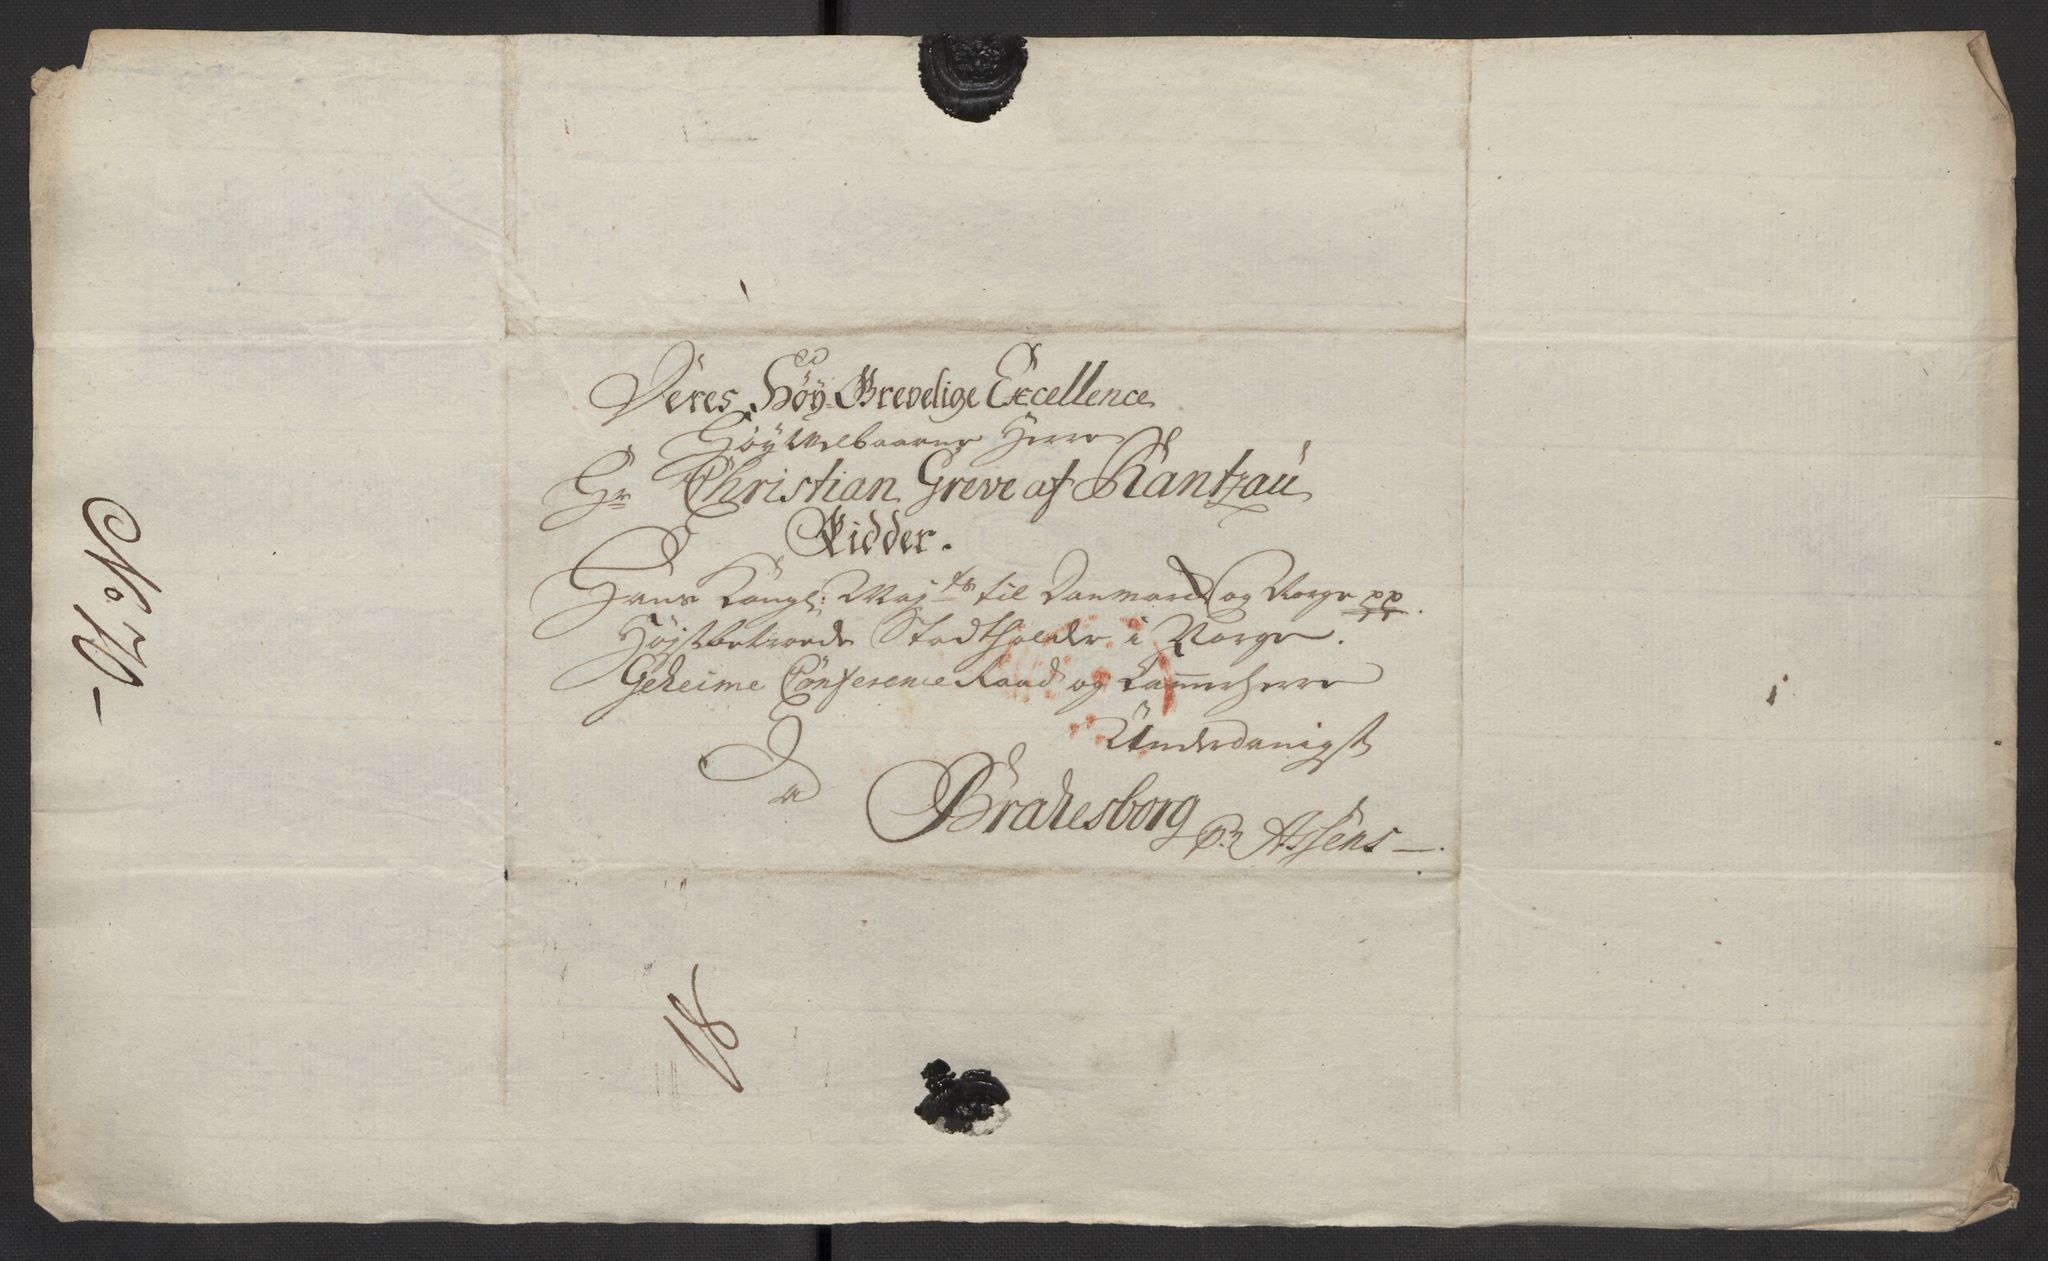 Deres Höy Grevelige Excellence
Höy Welbaarne Herre
Hr Christian Greve af Rantzau
Ridder.
Hans Kongl: Mayts til Danmark og Norge pp.
Høystbetroede Stadtholder i Norge.
Geheime Conference Raad og Cammerherre
Underdanigst
a
Brahesborg pr Assens
18